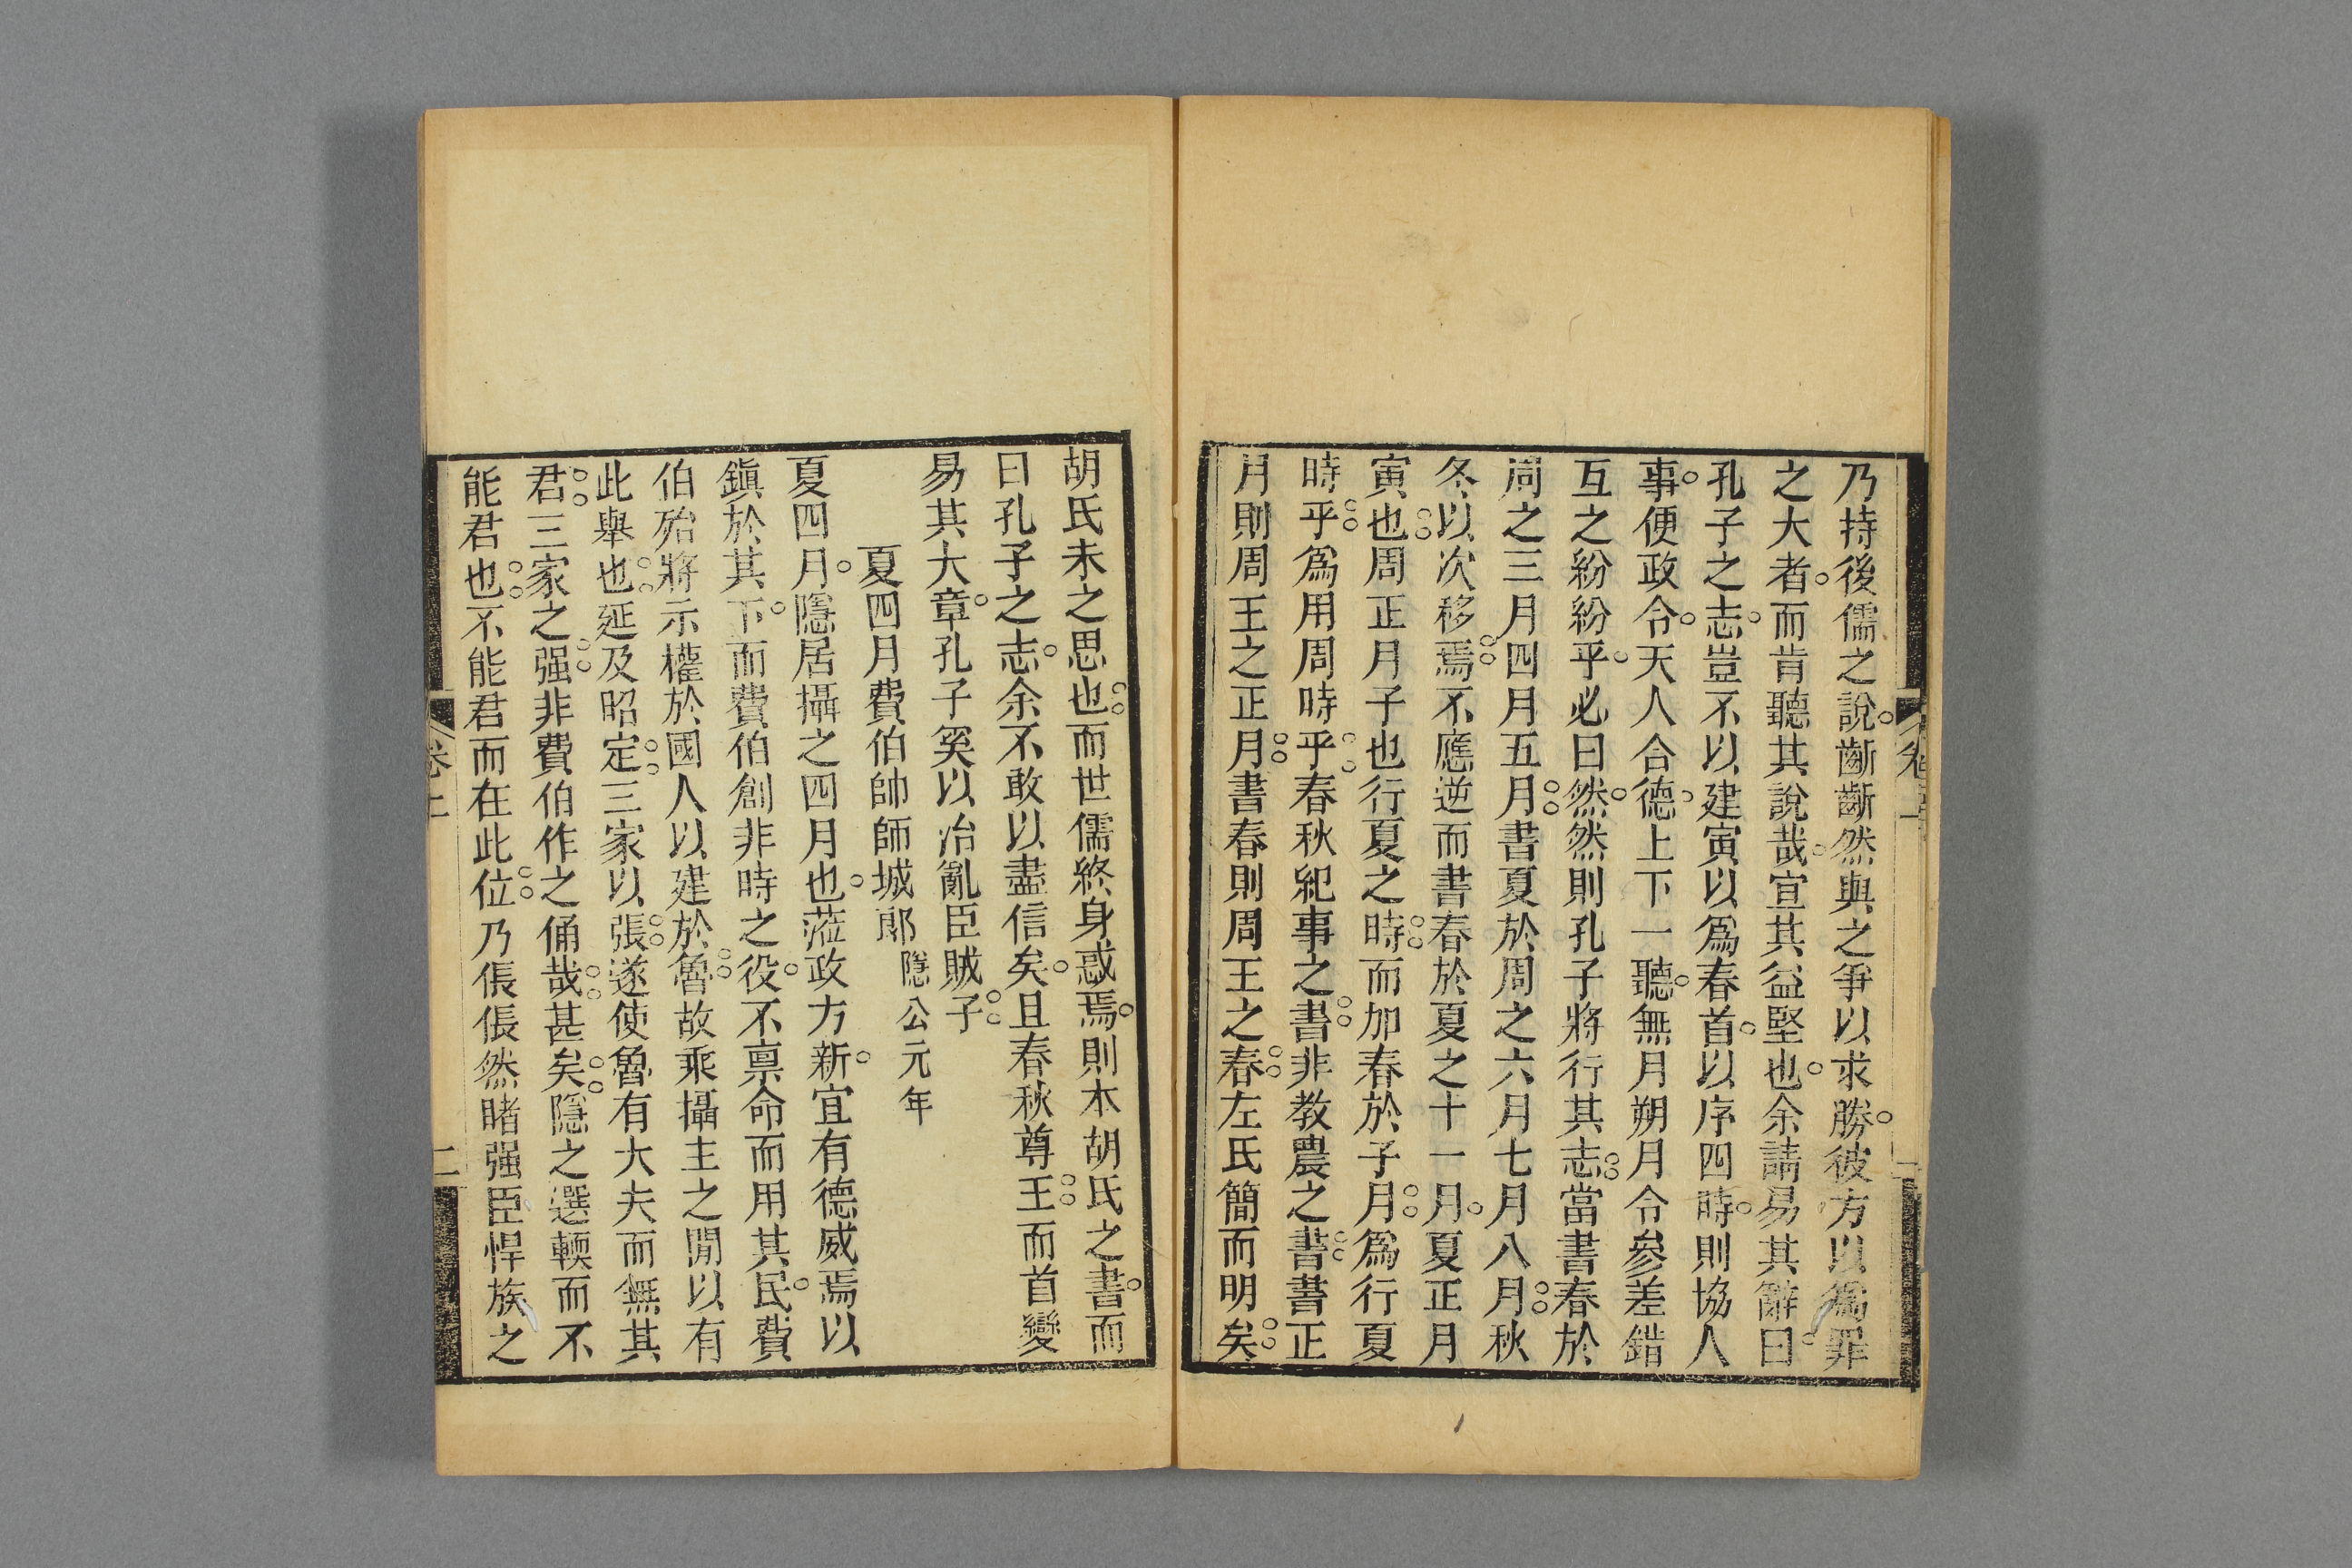 乃持後儒之說齗齗然與之爭以求勝彼方以爲罪
之大者而肯聽其說哉宣其益堅也余請易其辭曰
孔子之志豈不以建寅以爲春首以序四時則協人
事便政令天人合德上下一聽無月朔月令參差錯
互之紛紛乎必曰然然則孔子將行其志當書春於
周之三月四月五月書夏於周之六月七月八月秋
冬以次移焉不應逆而書春於夏之十一月夏正月
寅也周正月子也行夏之時而加春於子月爲行夏
時乎爲用周時乎春秋紀事之書非教農之書書正
月則周王之正月書春則周王之春左氏簡而明矣
胡氏未之思也而世儒終身惑焉則本胡氏之書而
曰孔子之志余不敢以盡信矣且春秋尊王而首變
易其大章孔子奚以治亂臣賊子
夏四月費伯帥師城郎隱公元年
夏四月隱居攝之四月也蒞政方新宜有德威焉以
鎭於其下而費伯創非時之役不禀命而用其民費
伯殆將示權於國人以建於魯故乘攝主之閒以有
此舉也延及昭定三家以張遂使魯有大夫而無其
君三家之强非費伯作之俑哉甚矣隱之選輭而不
能君也不能君而在此位乃倀倀然睹强臣悍族之
卷上
二